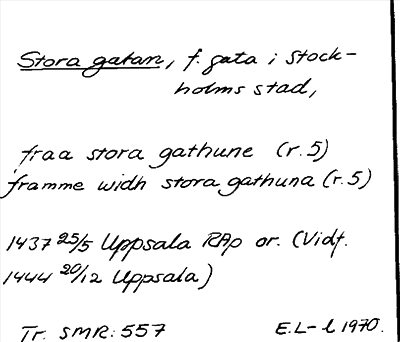 Stora gatan, f. gata i Stock-
holms stad,
fraa stora gathune (r.5)
framme widh stora gathuna (r.5)
1437 25/5 Uppsala RAp or. (Vidf.
1444 20/12 Uppsala)
Tr. SMR: 557 E.L-l 1970.